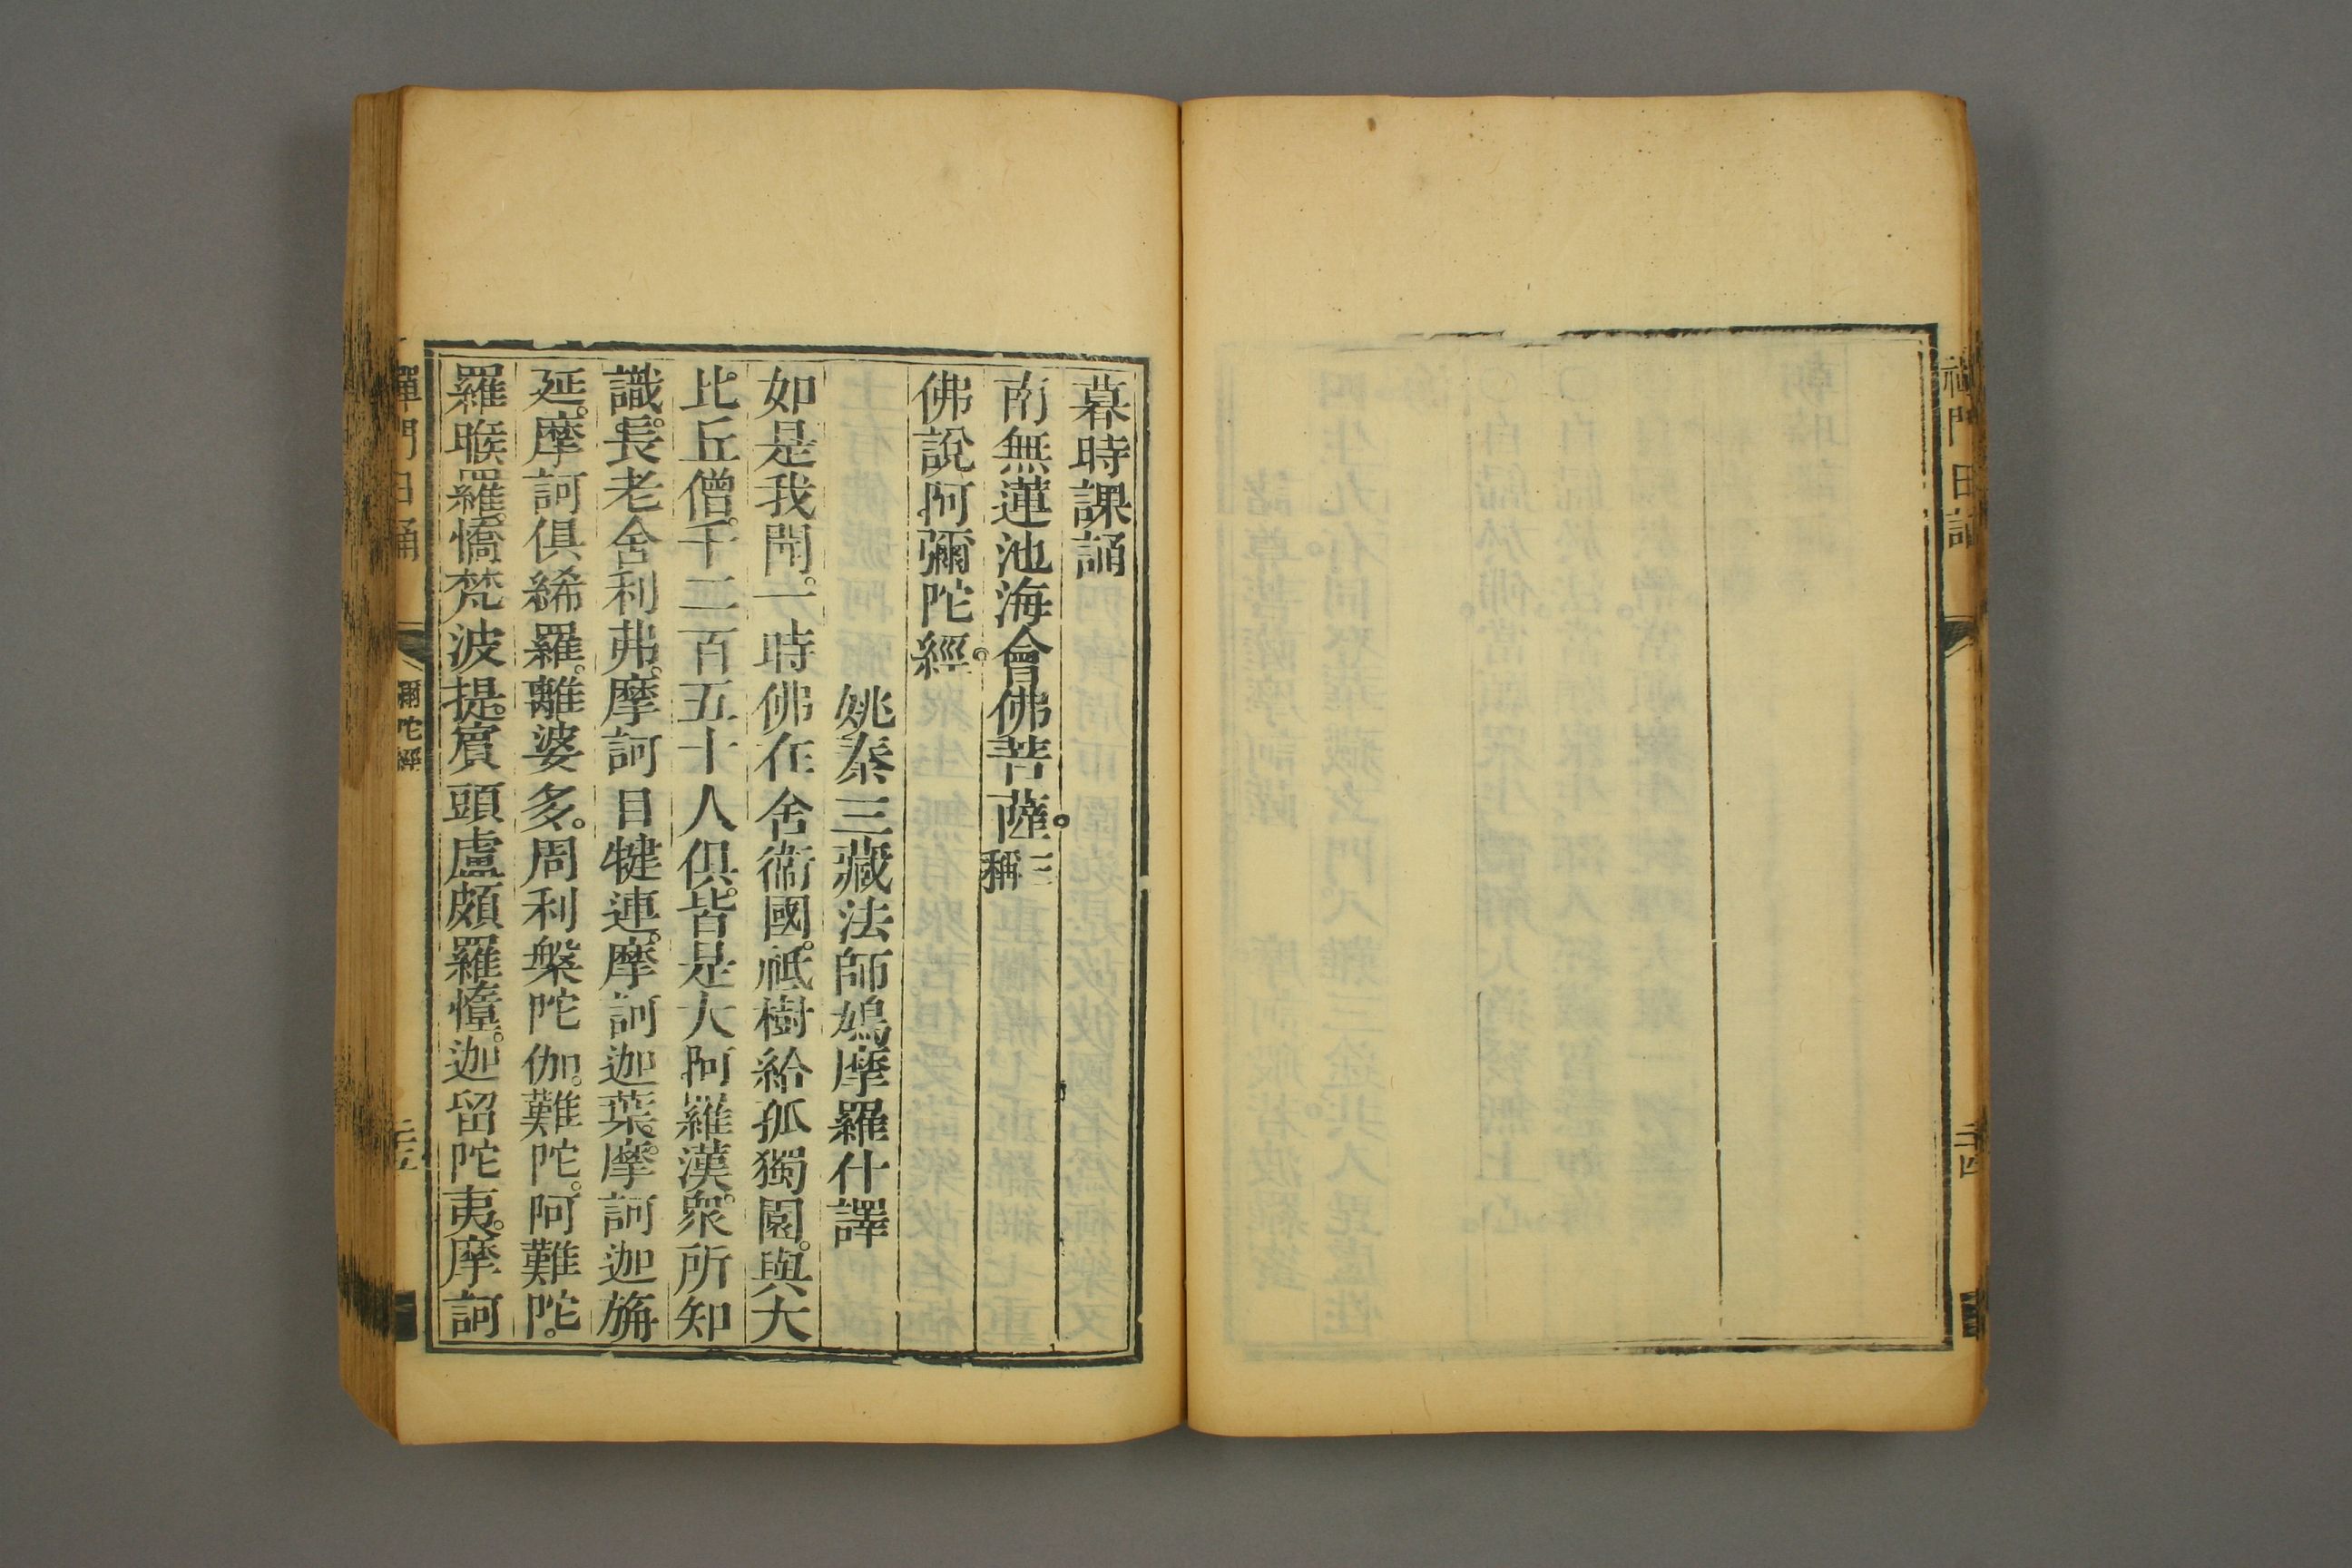 禪門日誦
二十四
暮時課誦
南無蓮池海會佛菩薩。三稱
佛說阿彌陀經。
姚秦三藏法師鳩摩羅什譯
如是我聞。一時佛在舍衛國。祗樹給孤獨園。與大
比丘僧。千二百五十人俱。皆是大阿羅漢。衆所知
識。長老舍利弗。摩訶目犍連。摩訶迦葉。摩訶迦旃
延。摩訶俱絺羅。離婆多。周利槃陀伽。難陀。阿難陀。
羅睺羅。憍梵波提。賓頭盧頗羅憧。迦留陀夷。摩訶
禪門日誦
彌陀經
二十五